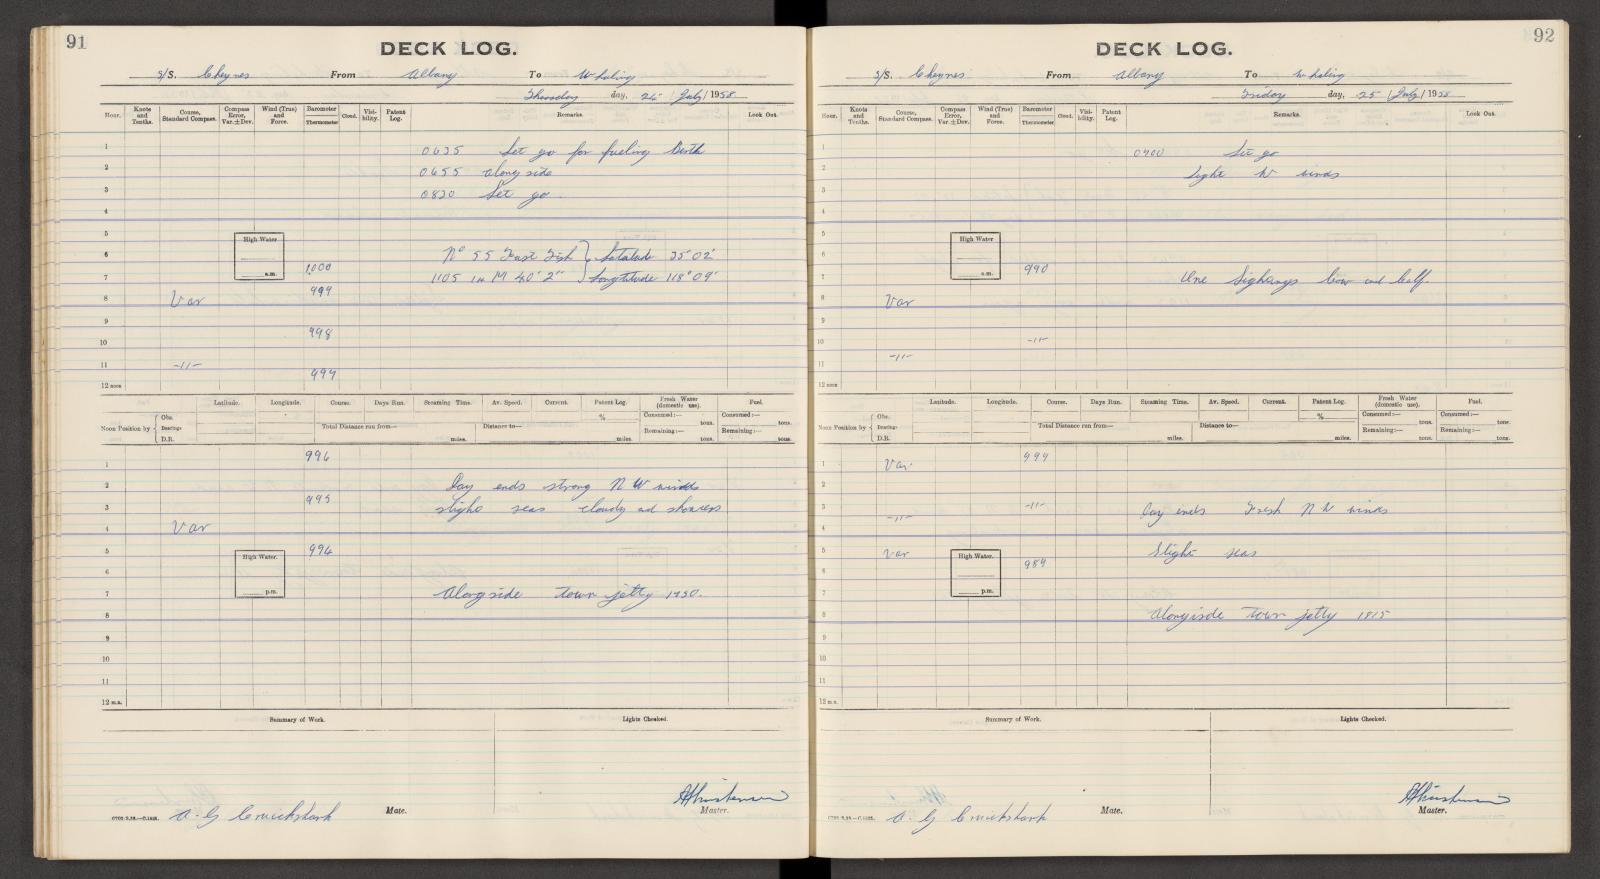 91
DECK LOG.
S/S. Cheynes From Albany To Whaling
Thursday day, 24 / July / 1958
Hour. Knots and Tenths. Course, Standard Compass. Compass Error, Var. ± Dev. Wind (True) and Force. Barometer Thermometer Cloud. Visibility. Patent Log. Remarks. Look Out.
1 0635 Set go for fueling Berth
2 0655 along side
3 0830 Set go.
4
5 High Water
6 No 55 Fast Fish } Latatude 35°02'
7 a.m. 1000 1105 in M 40' 2" } Longtitude 118°09'
8 Var 999
9
10 998
11 -11-
12 noon 997
Latitude. Longitude. Course. Days Run. Steaming Time. Av. Speed. Current. Patent Log. Fresh Water (domestic use). Fuel.
Noon Position by { Obs. Bearings D.R. Total Distance run from— miles. Distance to— % miles. Consumed:— tons. Remaining:— tons. Consumed:— tons. Remaining:— tons.
1 996
2 Day ends strong NW winds
3 995 slighs seas cloudy and showers
4 Var
5 High Water. 994
6
7 p.m. Alongside town jetty 1730.
8
9
10
11
12 m.n.
Summary of Work. Lights Checked.
A. G Cruickshank Mate. Master.
92
DECK LOG.
S/S. Cheynes From Albany To Whaling
Friday day, 25 / July / 1958
Hour. Knots and Tenths. Course, Standard Compass. Compass Error, Var. ± Dev. Wind (True) and Force. Barometer Thermometer Cloud. Visibility. Patent Log. Remarks. Look Out.
1 0700 Set go
2 Light W winds
3
4
5 High Water
6
7 a.m. 990 One Sighangs Cow and Calf.
8 Var
9
10 -11-
11 -11-
12 noon
Latitude. Longitude. Course. Days Run. Steaming Time. Av. Speed. Current. Patent Log. Fresh Water (domestic use). Fuel.
Noon Position by { Obs. Bearings D.R. Total Distance run from— miles. Distance to— % miles. Consumed:— tons. Remaining:— tons. Consumed:— tons. Remaining:— tons.
1 Var. 999
2
3 -11- -11- Day ends Fresh NW winds
4
5 Var High Water. Slight seas
6 989
7 p.m.
8 Alongisde town jetty 1815
9
10
11
12 m.n.
Summary of Work. Lights Checked.
A. G Cruickshank Mate. Master.